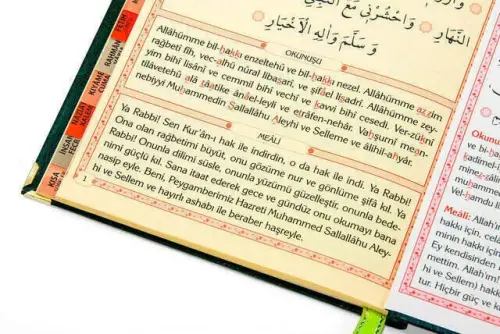 النَّهَارِ وَاحْشُرْنِي مَعَ النَّبِيِّ
وَسَلَّمَ وَاٰلِهِ الْاَخْيَارِ
OKUNUŞU
Allâhümme bil-hakkı enzeltehû ve bil-hakkı nezel. Allâhümme azzim
rağbetî fîh, vec-alhü nûral libasarî, ve şifâel lisadrî. Allâhümme zey-
yim bihî lisânî ve cemmil bihî vechî ve kavvi bihî cesedî. Ver-zükni
tilâvetehû alâ tâatike ânâel-leyli ve etrâfen-nehâr. Vahşurnî mean-
nebiyyi Muhammedin Sallallâhu Aleyhi ve Selleme ve âlihil-ahyâr.
MEÂLİ
Ya Rabbi! Sen Kur'ân-ı hak ile indirdin, o da hak ile indi. Ya Rabbi!
Ona olan rağbetimi büyüt, onu gözüme nur ve gönlüme şifâ kıl. Ya
Rabbi! Onunla dilimi süsle, onunla yüzümü güzelleştir, onunla bede-
nimi güçlü kıl. Sana itaat ederek gece ve gündüz onu okumayı bana
nasip eyle. Beni, Peygamberimiz Hazreti Muhammed Sallallâhu Aley-
hi ve Sellem ve hayırlı ashabı ile beraber haşreyle.
1
FETİH
RAHMAN
KIYÂME
CUMA
İNSAN
FECR
KISA
Okunuşu
Meâli: Allah'ım
hakkı için, celâ
minin hakkı için
Ey kendisinden
mettim. Allah'ım
hi ve Sellem) ha
tur. Hiçbir güç ve k